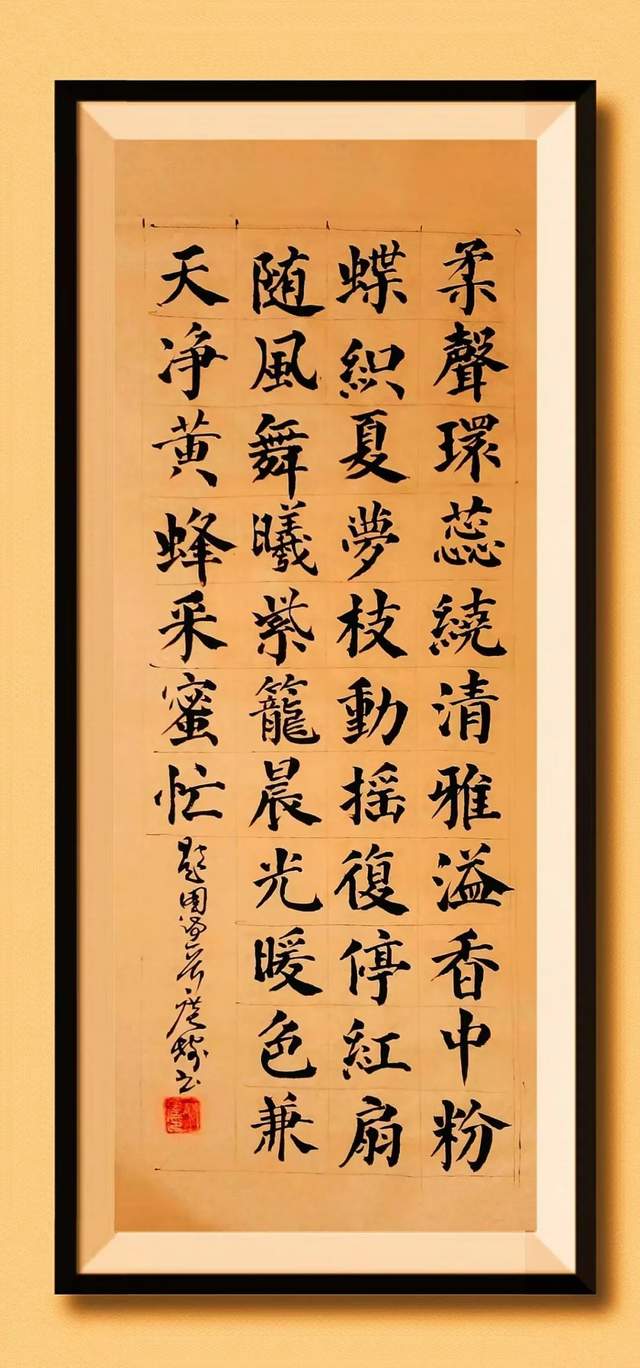 柔聲環蕊繞清雅溢香中粉
蝶織夏夢枝動摇復停紅扇
随風舞曦紫籠晨光暖色兼
天净黄蜂采蜜忙